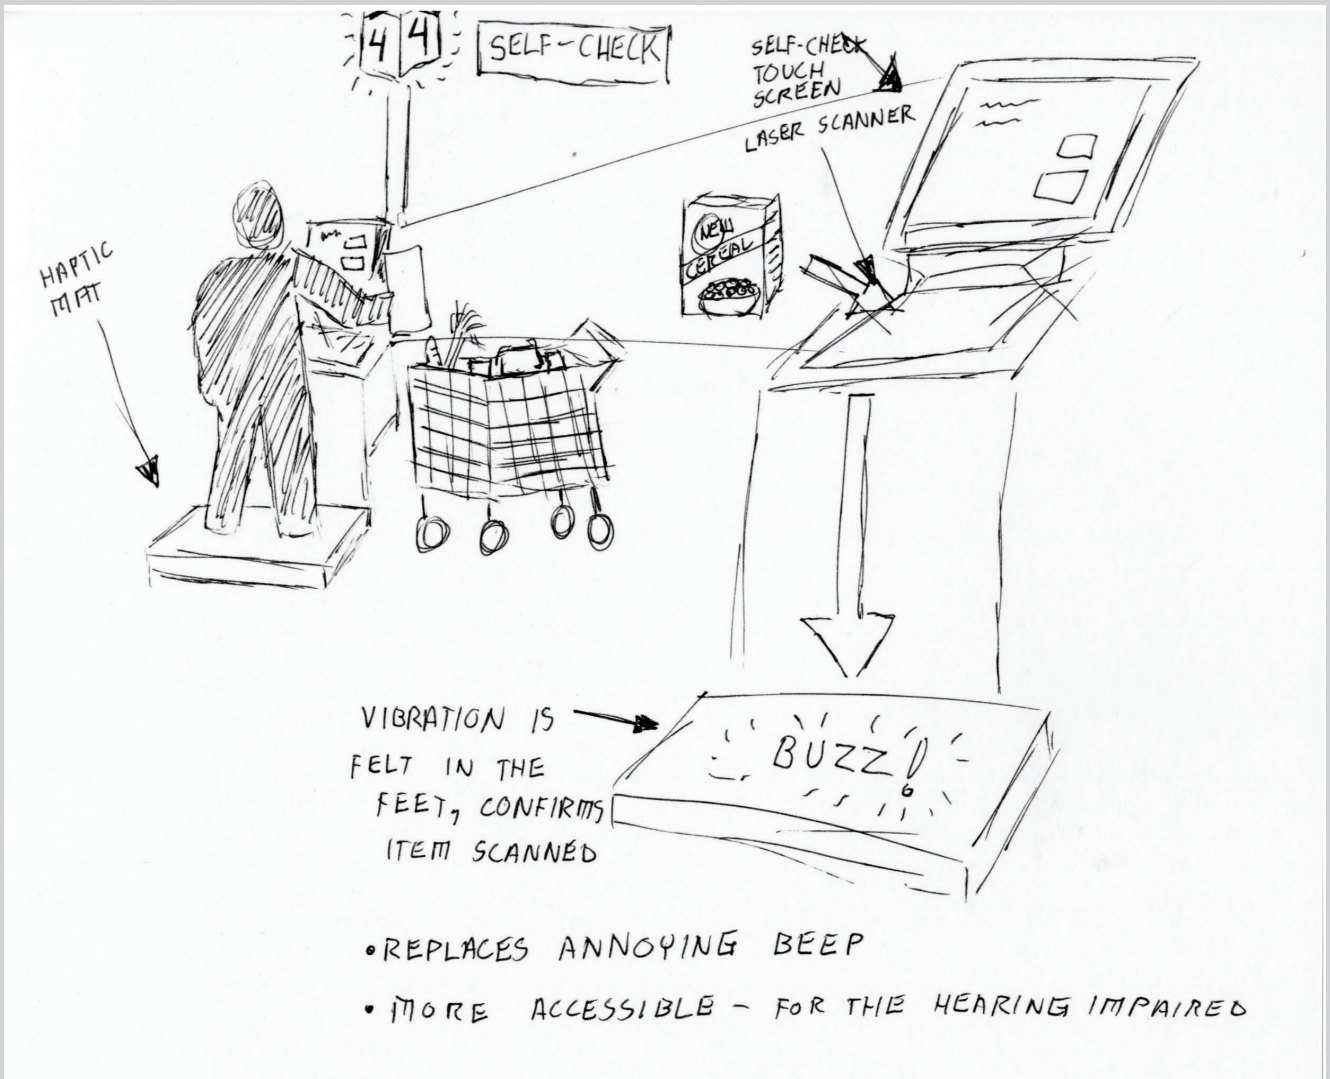 4 4
SELF-CHECK
SELF-CHECK
TOUCH
SCREEN
LASER SCANNER
HAPTIC
MAT
NEW
CEREAL
VIBRATION IS
FELT IN THE
FEET, CONFIRMS
ITEM SCANNED
BUZZ!
• REPLACES ANNOYING BEEP
• MORE ACCESSIBLE - FOR THE HEARING IMPAIRED